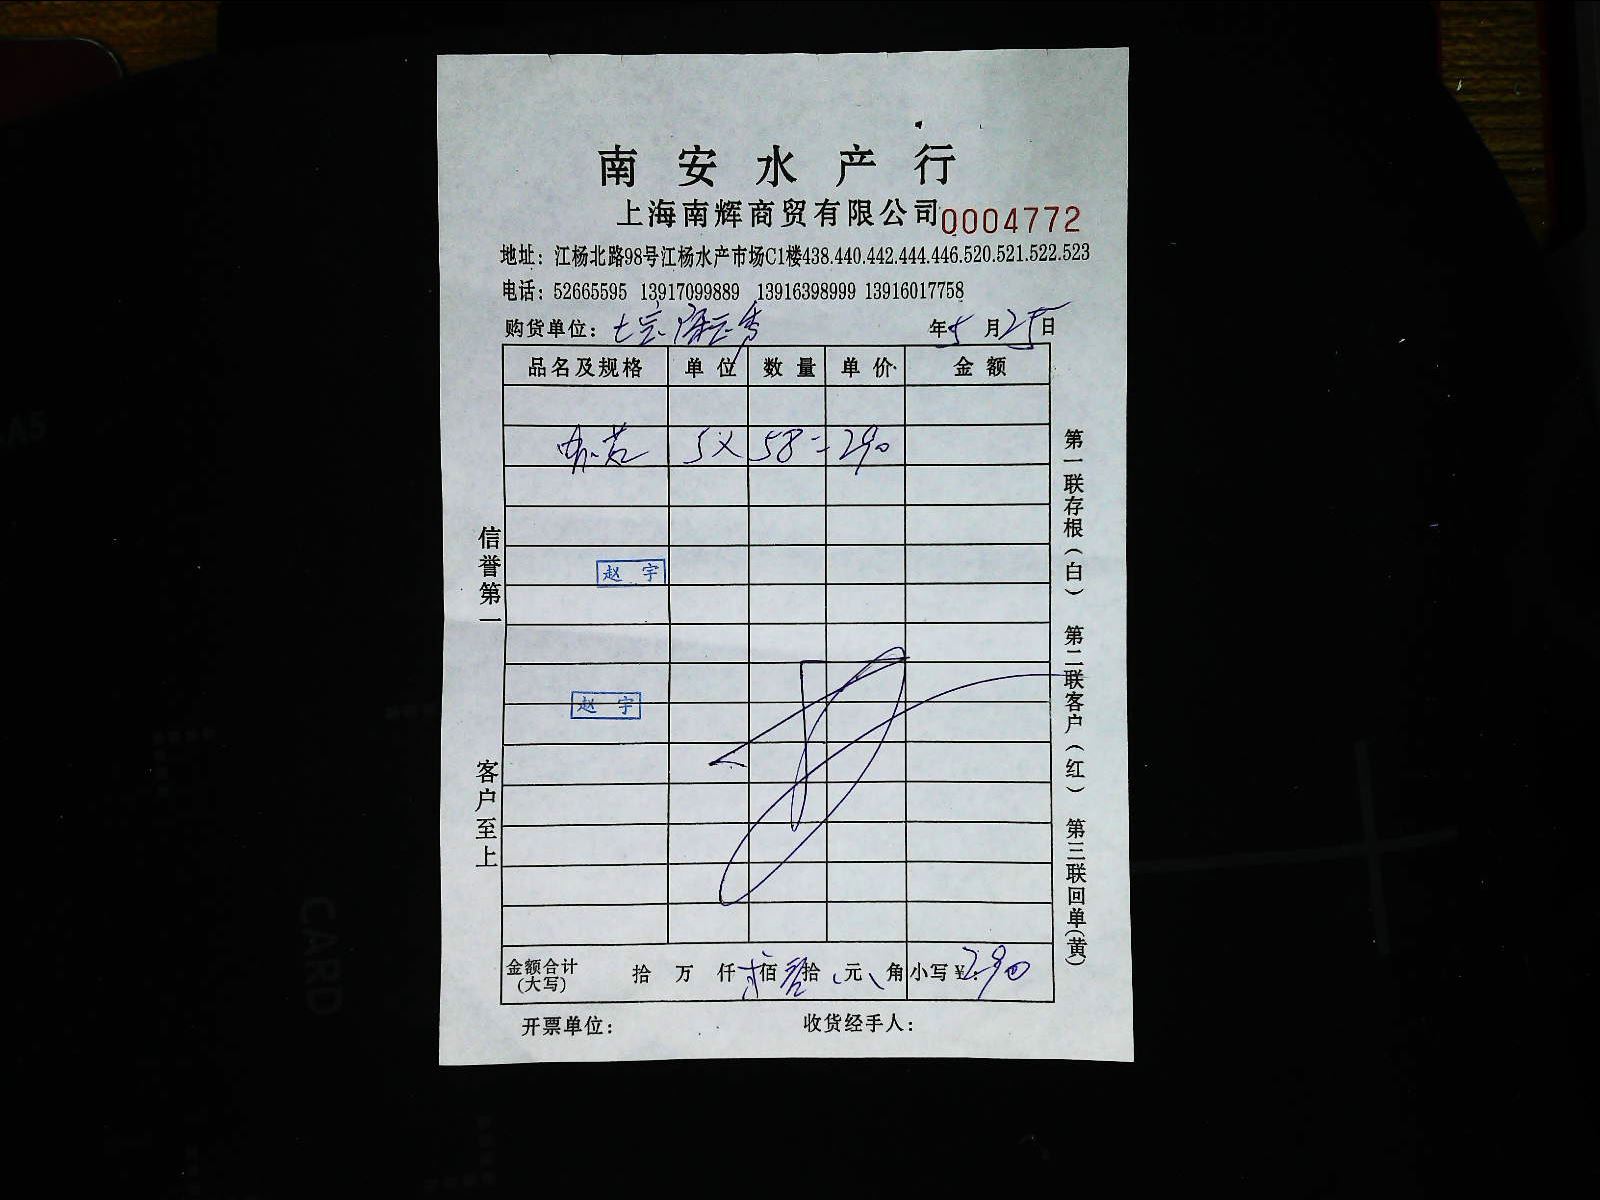 南安水产行
上海南辉商贸有限公司 0004772
地址：江杨北路98号江杨水产市场C1楼438.440.442.444.446.520.521.522.523
电话：52665595 13917099889 13916398999 13916017758
购货单位： 年5月25日
品名及规格 单位 数量 单价 金额
5× 58=290
赵宇
赵宇
金额合计(大写) 拾万仟贰佰玖拾、元、角 小写￥：290
开票单位： 收货经手人：
信誉第一
客户至上
第一联存根(白) 第二联客户(红) 第三联回单(黄)
A5
CARD